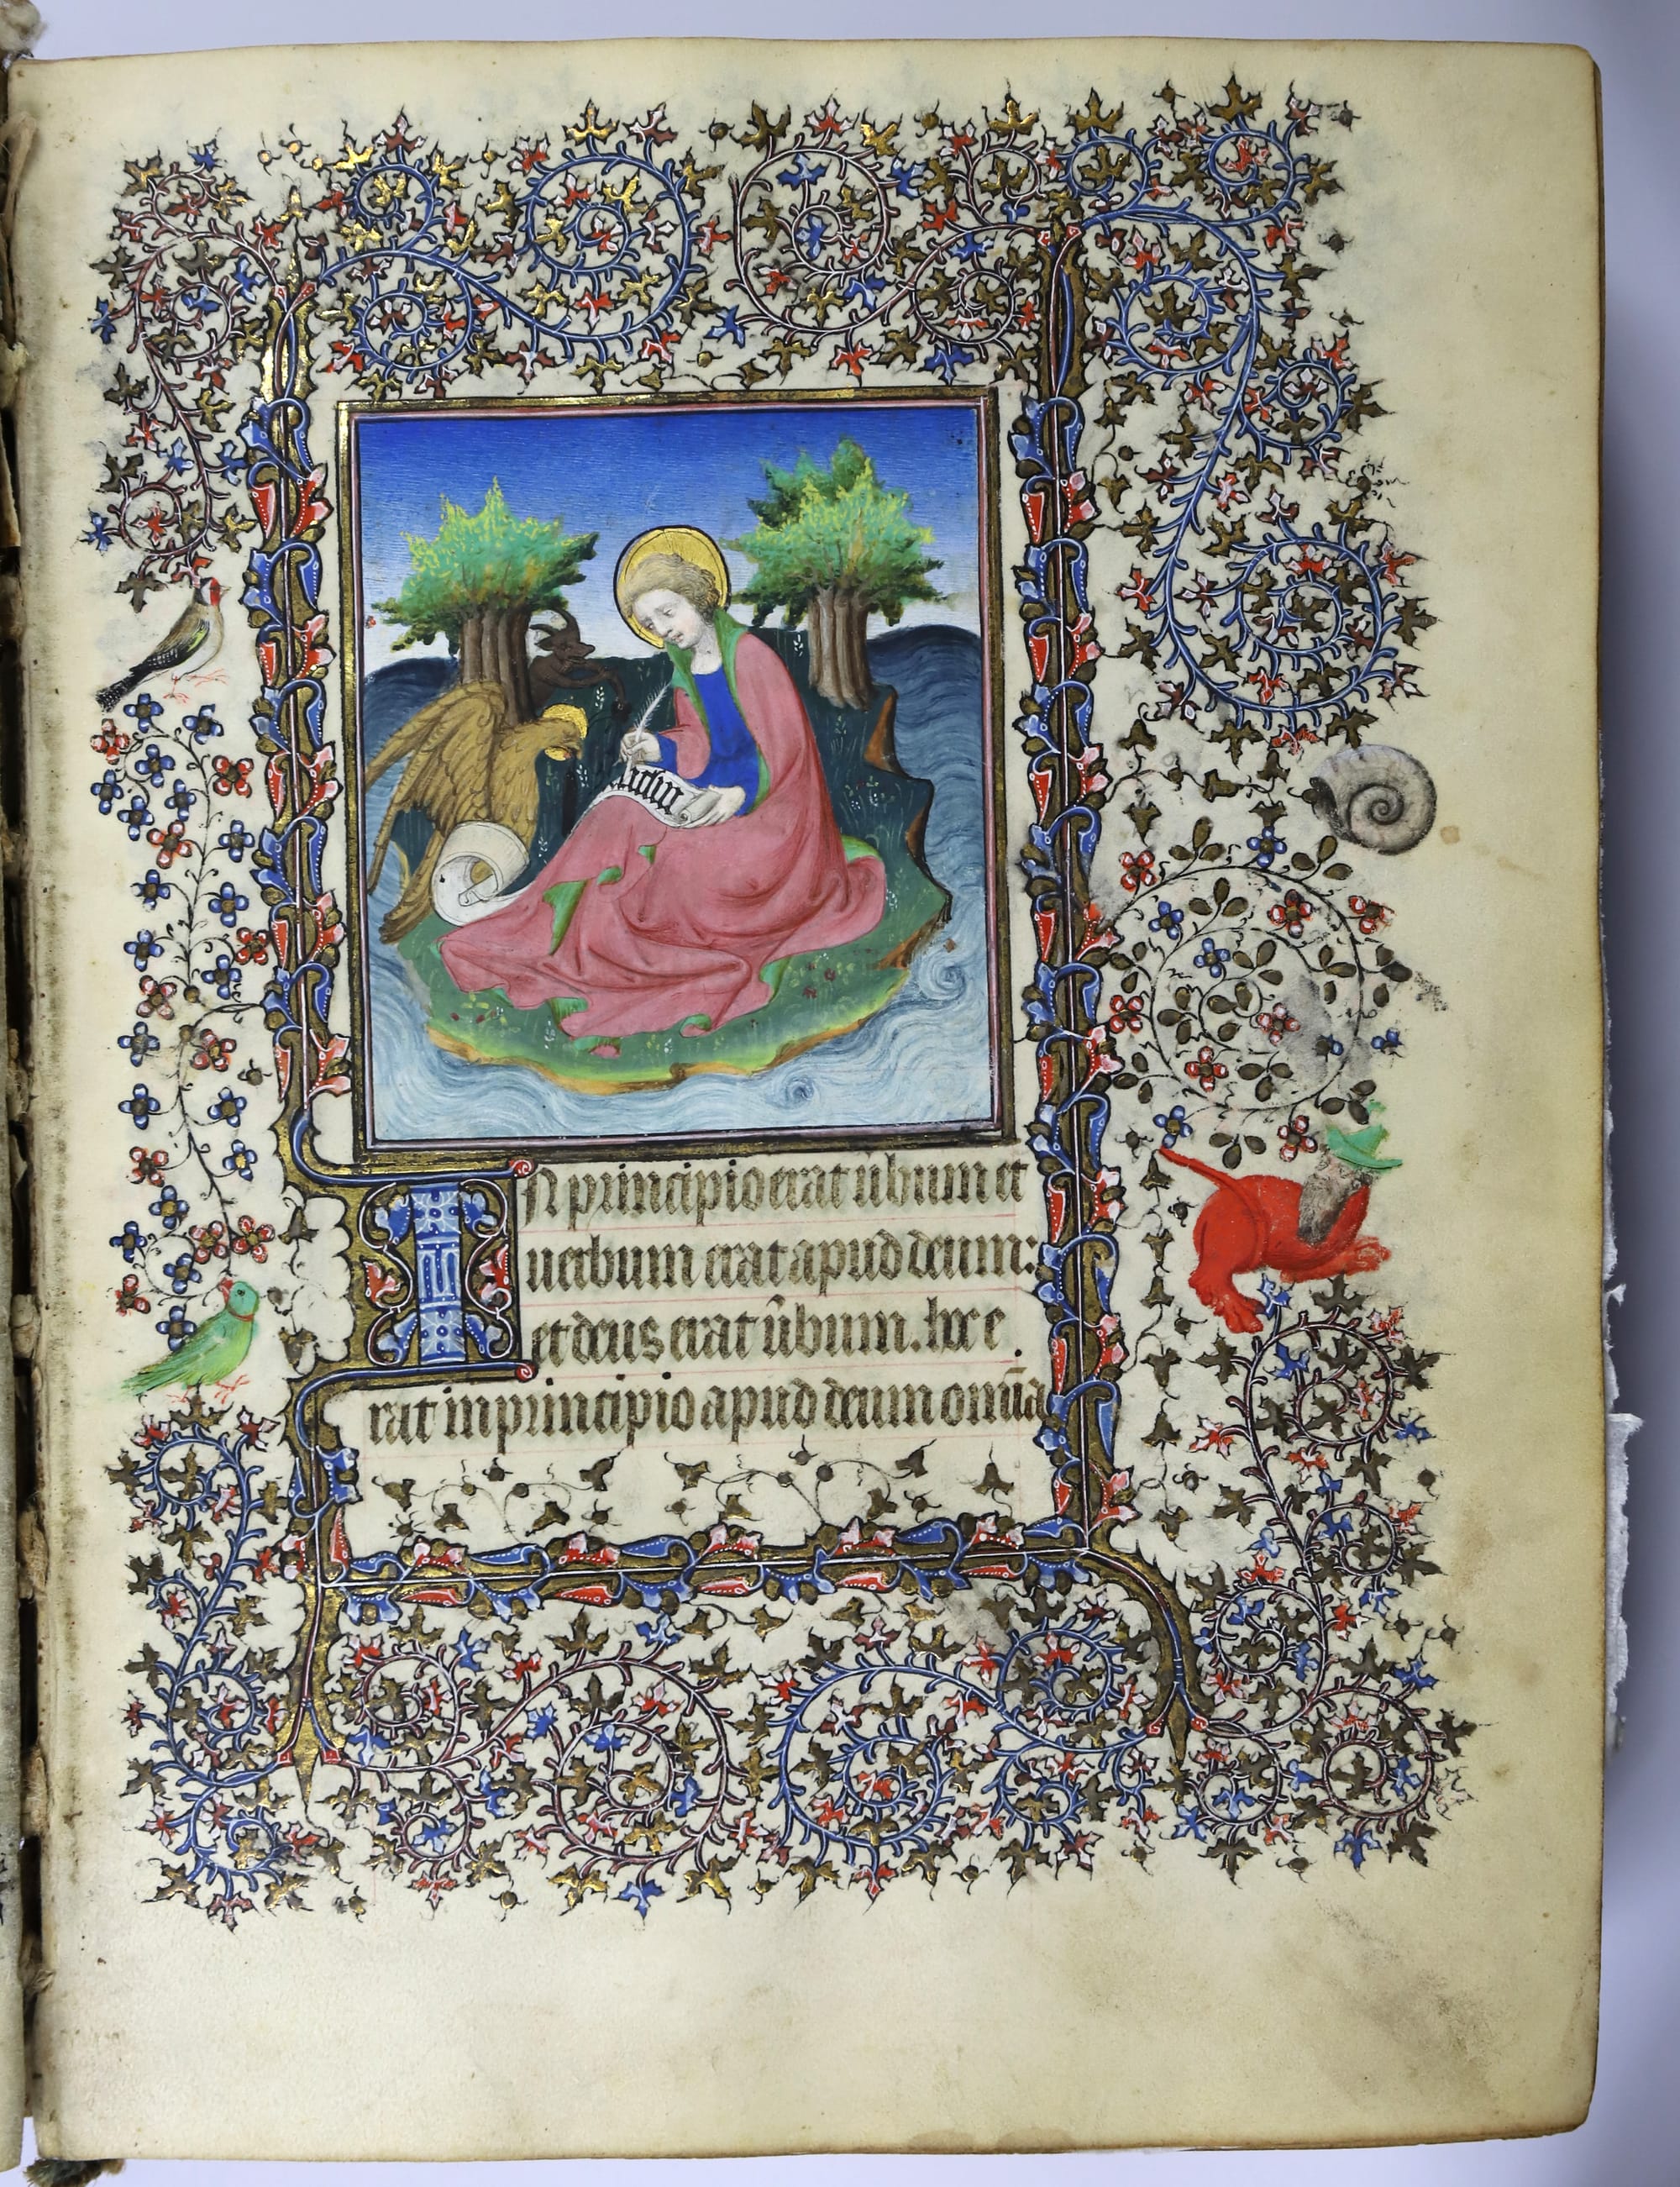 IN principio erat ūbum et
uerbum erat apud deum:
et deus erat ūbum. hoc e
rat in principio apud deum om̄ia